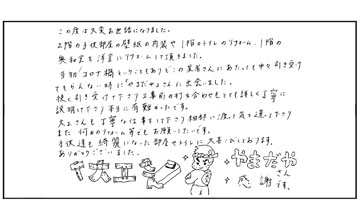 この度は大変お世話になりました。
2階の子供部屋の壁紙の内装や1階のトイレのリフォーム、1階の
無和室を洋室にリフォームして頂きました。
当初「コロナ禍」ということもあり、どこの業者さんにあたっても中々引き受け
てもらえない時に「やまだやさん」に出会いました。
快く引き受けて下さり工事前の打ち合わせもとても詳しく丁寧に
説明して下さり本当に有難かったです。
大工さんも丁寧な仕事をして下さり細部に渡って気を遣って下さり
また何かのリフォーム等でもお願いしたいです。
子供達も綺麗になった部屋やトイレに大喜びしております。
ありがとうございました。
大工
やまだや
さん
感謝です。